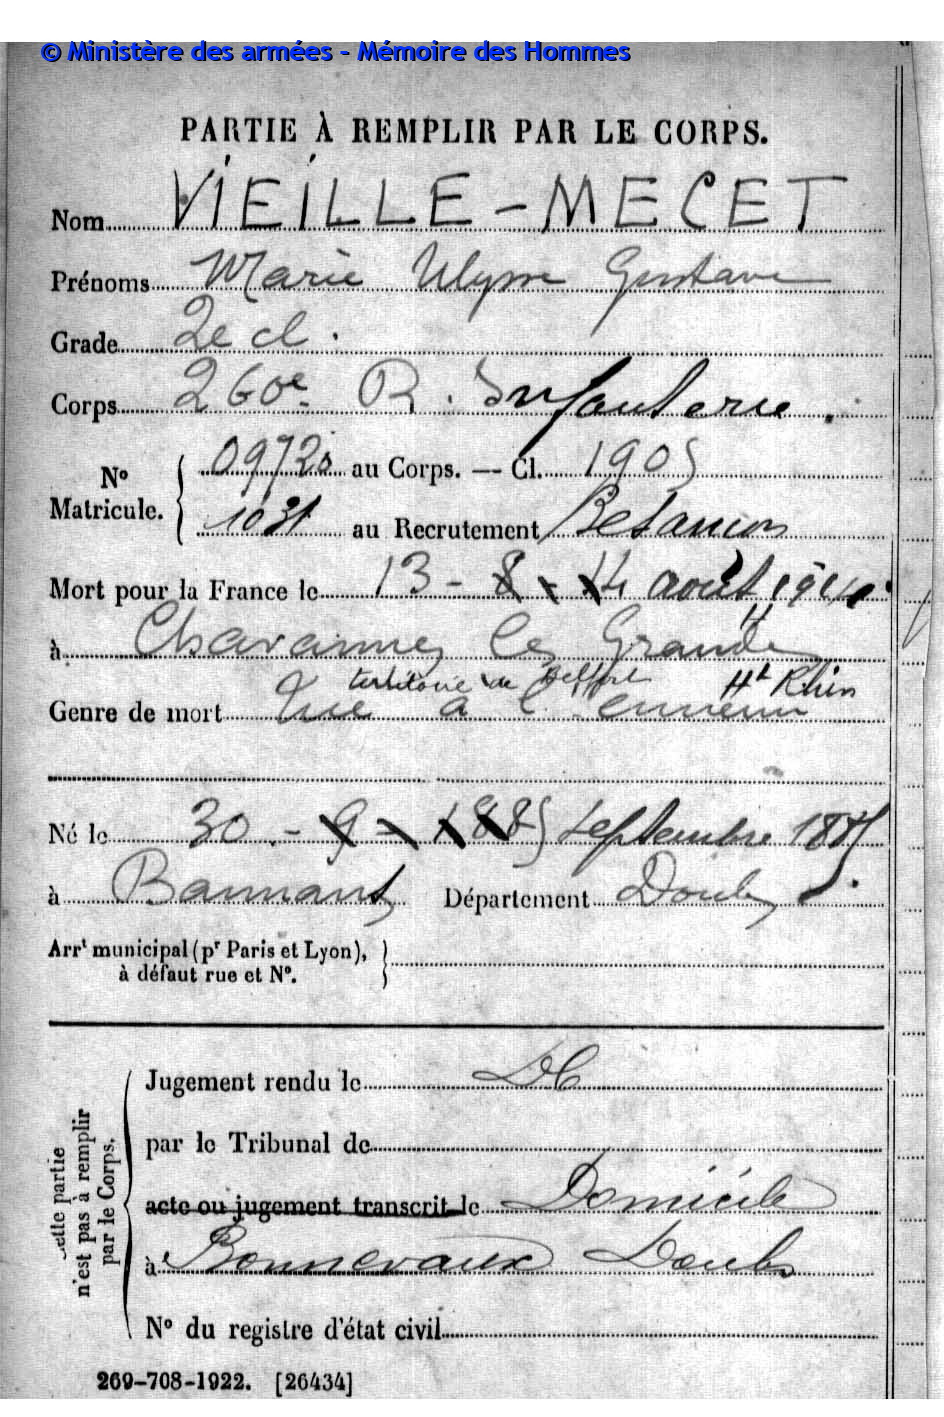 © Ministère des armées - Mémoire des Hommes
PARTIE À REMPLIR PAR LE CORPS.
Nom VIEILLE-MECET
Prénoms Marie Ulysse Gustave
Grade 2e cl.
Corps 260e R. Infanterie.
No Matricule. 09720 au Corps. — Cl. 1905
1031 au Recrutement Besançon
Mort pour la France le 13 - 8 - 14 août 1914
à Chavannes les Grands
territoire de Belfort Ht Rhin
Genre de mort Tué à l'ennemi
Né le 30 - 9 - 1885 septembre 1885
à Bannans Département Doubs
Arrt municipal (pr Paris et Lyon),
à défaut rue et No.
Cette partie
n'est pas à remplir
par le Corps.
Jugement rendu le DC
par le Tribunal de
acte ou jugement transcrit le Domicile
à Bonnevaux Doubs
No du registre d'état civil
269-708-1922. [26434]